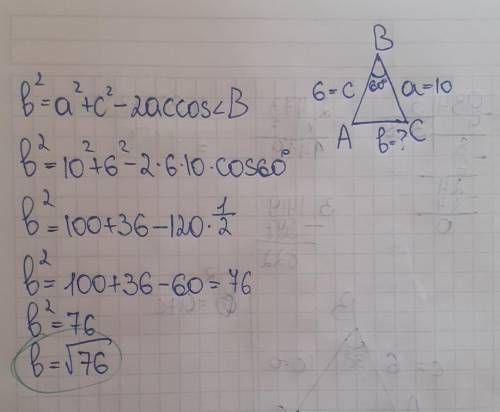 b² = a² + c² - 2accos∠B
b² = 10² + 6² - 2·6·10·cos60°
b² = 100 + 36 - 120·1/2
b² = 100 + 36 - 60 = 76
b² = 76
b = √76
B
60°
6 = c
a = 10
A
C
b = ?